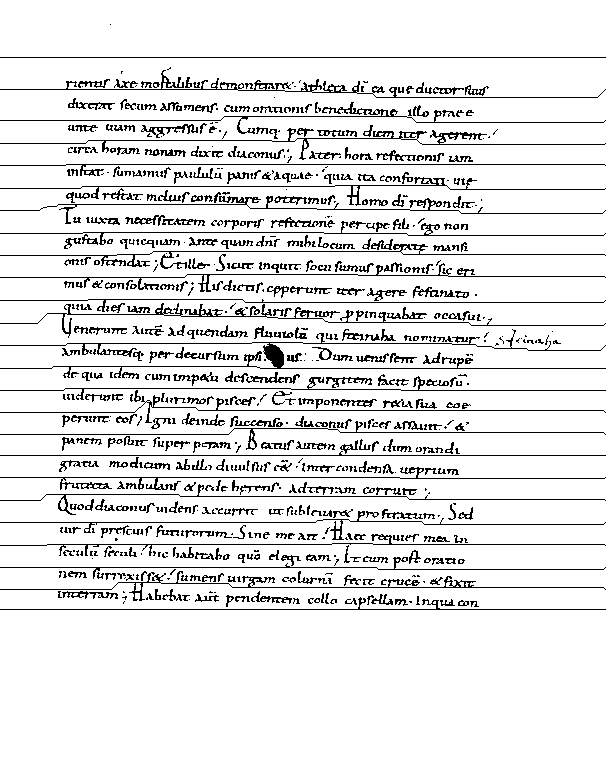 rientis axe mortalibus demonstraret· athleta dī ea que ductor suus
dixerat secum assumens· cum orationis benedictione illo prae e
unte uiam aggressus ē·, Cumq· per totum diem iter agerent·
circa horam nonam dixit diaconus·, Pater hora refectionis iam
instat· sumamus paululū panis & aquae· quia ita confortati· uie
quod restat melius consūmare poterimus, Homo dī respondit·;
Tu iuxta necessitatem corporis refectionē percipe fili· ego non
gustabo quicquam· ante quam dn̄s mihi locum desideratę mansi
onis ostendat; Et ille· Sicut inquit socii sumus passionis· sic eri
mus & consolationis; His dictis· cęperunt iter agere festinato·
quia dies iam declinabat· & solaris feruor ꝓpinquabat occasui·,
Uenerunt autē ad quendam fluuiolū qui steinaha nominatur· steinaha
Ambulantesq; per decursum ipsi us· Dum uenissent ad rupē
de qua idem cum impetu descendens gurgitem facit speciosū·
uiderunt ibi plurimos pisces· Et imponentes retia sua coe
perunt eos; Igni deinde succenso· diaconus pisces assauit· &
panem posuit super peram·, Beatus autem gallus dum orandi
gratia modicum ab illo diuulsus eēt· inter condensa ueprium
fruteta ambulans & pede herens· ad terram corruit·,
Quod diaconus uidens accurrit ut subleuaret prostratum·, Sed
uir dī pręscius futurorum· Sine me ait· Haec requies mea in
seculū seculi· hic habitabo quō elegi eam·, Et cum post oratio
nem surrexisset· sumens uirgam colurnā fecit crucē· & fixit
in terram; Habebat aūt pendentem collo capsellam· In qua con